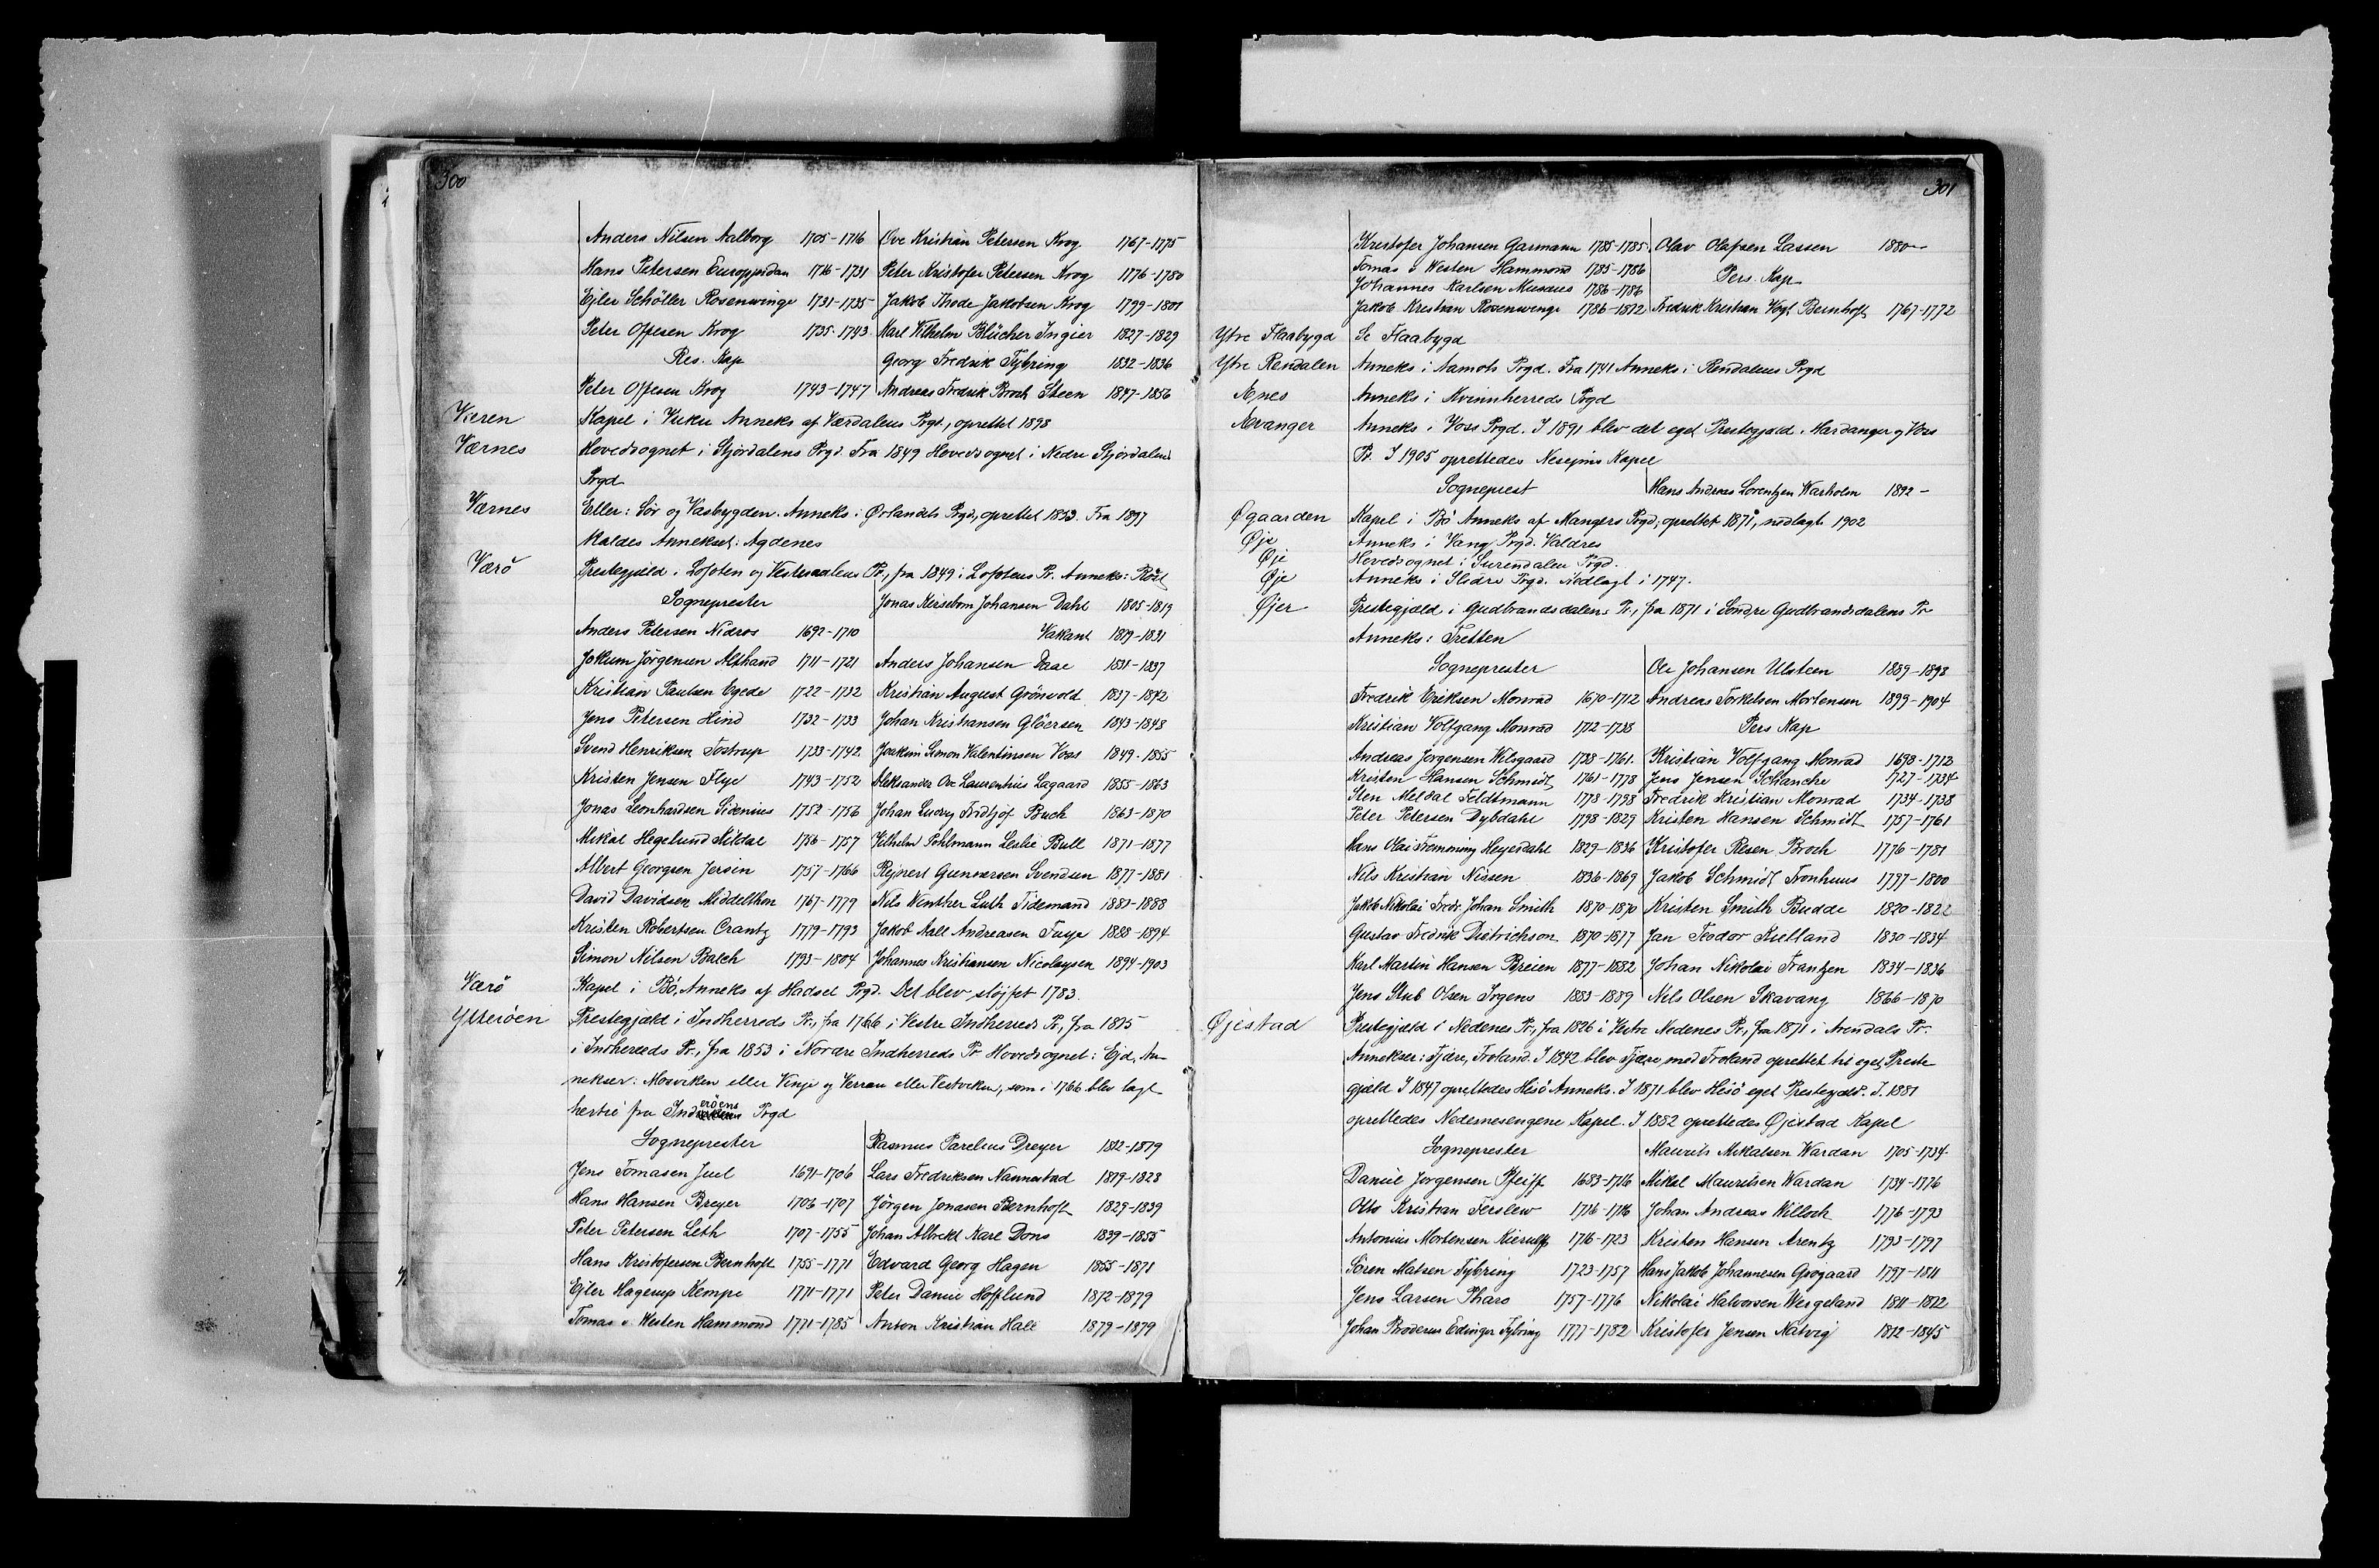 300
Anders Nilsen Aalborg 1705-1716 Ove Kristian Petersen Krog 1767-1775
Hans Petersen Europpidan 1716-1731 Peter Kristofer Petersen Krog 1776-1780
Ejler Schöller Rosenwinge 1731-1735 Jakob Thode Jakobsen Krog 1799-1801
Peter Offesen Krog 1735-1743 Karl Vilhelm Blücher Ingier 1827-1829
Res. Kap Georg Fredrik Tybring 1832-1836
Peter Offesen Krog 1743-1747 Andreas Fredrik Broch Steen 1847-1856
Væren Kapel i Vuku Anneks af Værdalens Prgd., oprettet 1898
Værnes Hovedsognet i Stjördalens Prgd. Fra 1849 Hovedsognet i Nedre Stjördalens
Prgd
Værnes Eller: Sör og Vasbygden. Anneks i Ørlandets Prgd., oprettet 1853. Fra 1897
kaldes Annekset: Agdenes
Værö Prestegjæld i Lofoten og Vesteraalens Pr., fra 1849 i Lofotens Pr. Anneks: Röst
Sogneprester Jonas Kiersebom Johansen Dahl 1805-1819
Anders Petersen Nidros 1692-1710 Vakant 1819-1831
Jokum Jörgensen Althand 1711-1721 Anders Johansen Daae 1831-1837
Kristian Paulsen Egede 1722-1732 Kristian August Grönvold 1837-1842
Jens Petersen Hind 1732-1733 Johan Kristiansen Glöersen 1843-1848
Svend Henriksen Tostrup 1733-1742 Joakim Simon Valentinsen Voss 1849-1855
Kristen Jensen Flye 1743-1752 Aleksander Ove Laurentius Lagaard 1855-1863
Jonas Leonhardsen Sidenius 1752-1756 Johan Ludvig Fridtjof Buch 1863-1870
Mikal Hegelund Kildal 1756-1757 Vilhelm Pohlmann Leslie Bull 1871-1877
Albert Georgsen Jersin 1757-1766 Rejnert Gunnersen Svendsen 1877-1881
David Davidsen Middelthon 1767-1779 Nils Winther Luth Tidemand 1883-1888
Kristen Robertsen Crantz 1779-1793 Jakob Aall Andreasen Faye 1888-1894
Simon Nilsen Balch 1793-1804 Johannes Kristiansen Nicolaysen 1894-1903
Værö Kapel i Bö, Anneks af Hadsel Prgd. Det blev slöjfet 1783.
Ytteröen Prestegjæld i Indherreds Pr., fra 1766 i Vestre Indherreds Pr., fra 1815
i Indherreds Pr., fra 1853 i Nordre Indherreds Pr Hovedsognet: Ejd, An-
nekser: Mosviken eller Vinje og Verran eller Vestviken, som i 1766 blev lagt
hertil fra Inderöens Prgd
Sogneprester Rasmus Parelius Dreyer 1812-1819
Jens Tomasen Juel 1691-1706 Lars Fredriksen Nannestad 1819-1828
Hans Hansen Breyer 1706-1707 Jörgen Jonasen Bernhoft 1829-1839
Peter Petersen Leth 1707-1755 Johan Albrekt Karl Dons 1839-1855
Hans Kristofersen Bernhoft 1755-1771 Edvard Georg Hagen 1855-1871
Ejler Hagerup Kempe 1771-1771 Peter Daniel Hofflund 1872-1879
Tomas v. Westen Hammond 1771-1785 Anton Kristian Hall 1879-1879
301
Kristofer Johansen Garmann 1785-1785 Olav Olafsen Lassen 1880-
Tomas v Westen Hammond 1785-1786 Pers. Kap
Johannes Karlsen Musæus 1786-1786
Jakob Kristian Rosenwinge 1786-1812 Fredrik Kristian Vogt Bernhoft 1767-1772
Ytre Flaabygd Se Flaabygd
Ytre Rendalen Anneks i Aamots Prgd. Fra 1741 Anneks i Rendalens Prgd
Ænes Anneks i Kvinnherreds Prgd
Ævanger Anneks i Voss Prgd. I 1891 blev det eget Prestegjæld i Hardanger og Voss
Pr. I 1905 oprettedes Nesejms Kapel
Sogneprest Hans Andreas Lorentzen Warholm 1892-
Øgaarden Kapel i Bö Anneks af Mangers Prgd., oprettet 1871, nedlagt 1902
Øje Anneks i Vang Prgd. Valdres
Øje Hovedsognet i Surendalen Prgd.
Øje Anneks i Slidre Prgd. Nedlagt i 1747.
Øjer Prestegjæld i Gudbrandsdalens Pr., fra 1871 i Söndre Gudbrandsdalens Pr
Anneks: Tretten
Sogneprester Ole Johansen Ulsteen 1889-1898
Fredrik Eriksen Monrad 1670-1712 Andreas Torkelsen Mortensen 1899-1904
Kristian Volfgang Monrad 1712-1738 Pers Kap
Andreas Jorgensen Welsgaard 1738-1761. Kristian Volfgang Monrad 1698-1712
Kristen Hansen Schmidt 1761-1778 Jens Jensen Schanche 1727-1734
Sten Meldal Feldtmann 1778-1798 Fredrik Kristian Monrad 1734-1738
Peter Petersen Dybdahl 1798-1829 Kristen Hansen Schmidt 1757-1761
Hans Olai Flemming Heyerdahl 1829-1836 Kristofer Resen Broch 1776-1781
Nils Kristian Nissen 1836-1869 Jakob Schmidt Tronhuus 1797-1800
Jakob Nikolai Fredr. Johan Smith 1870-1870 Kristen Smith Budde 1820-1822
Gustav Fredrik Dietrichson 1870-1877 Jan Teodor Kielland 1830-1834
Karl Martin Hansen Breien 1877-1882 Johan Nikolai Frantzen 1834-1836
Jens Stub Olsen Irgens 1883-1889 Nels Olsen Skavang 1866-1870
Øjestad Prestegjæld i Nedenes Pr., fra 1826 i Vestre Nedenes Pr., fra 1871 i Arendals Pr.
Annekser: Fjære, Froland. I 1842 blev Fjære med Froland oprettet til eget Preste
gjæld I 1847 oprettedes Hisö Anneks. I 1871 blev Hisö eget Prestegjæld. I. 1881
oprettedes Nedenesengene Kapel. I 1882 oprettedes Øjestad Kapel
Sogneprester Maurits Mikalsen Wardan 1705-1734
Daniel Jorgensen Pfeiff 1683-1716 Mikal Mauritsen Wardan 1734-1776
Otto Kristian Terslew 1716-1716 Johan Andreas Willoch 1776-1793
Antonius Mortensen Kierulff 1716-1723 Kristen Hansen Arentz 1793-1797
Sören Matsen Tybring 1723-1757 Hans Jakob Johannesen Grögaard 1797-1811
Jens Larsen Pharo 1757-1776 Nikolai Halvorsen Wergeland 1811-1812
Johan Broderus Edinger Tybring 1777-1782 Kristofer Jensen Natvig 1812-1845